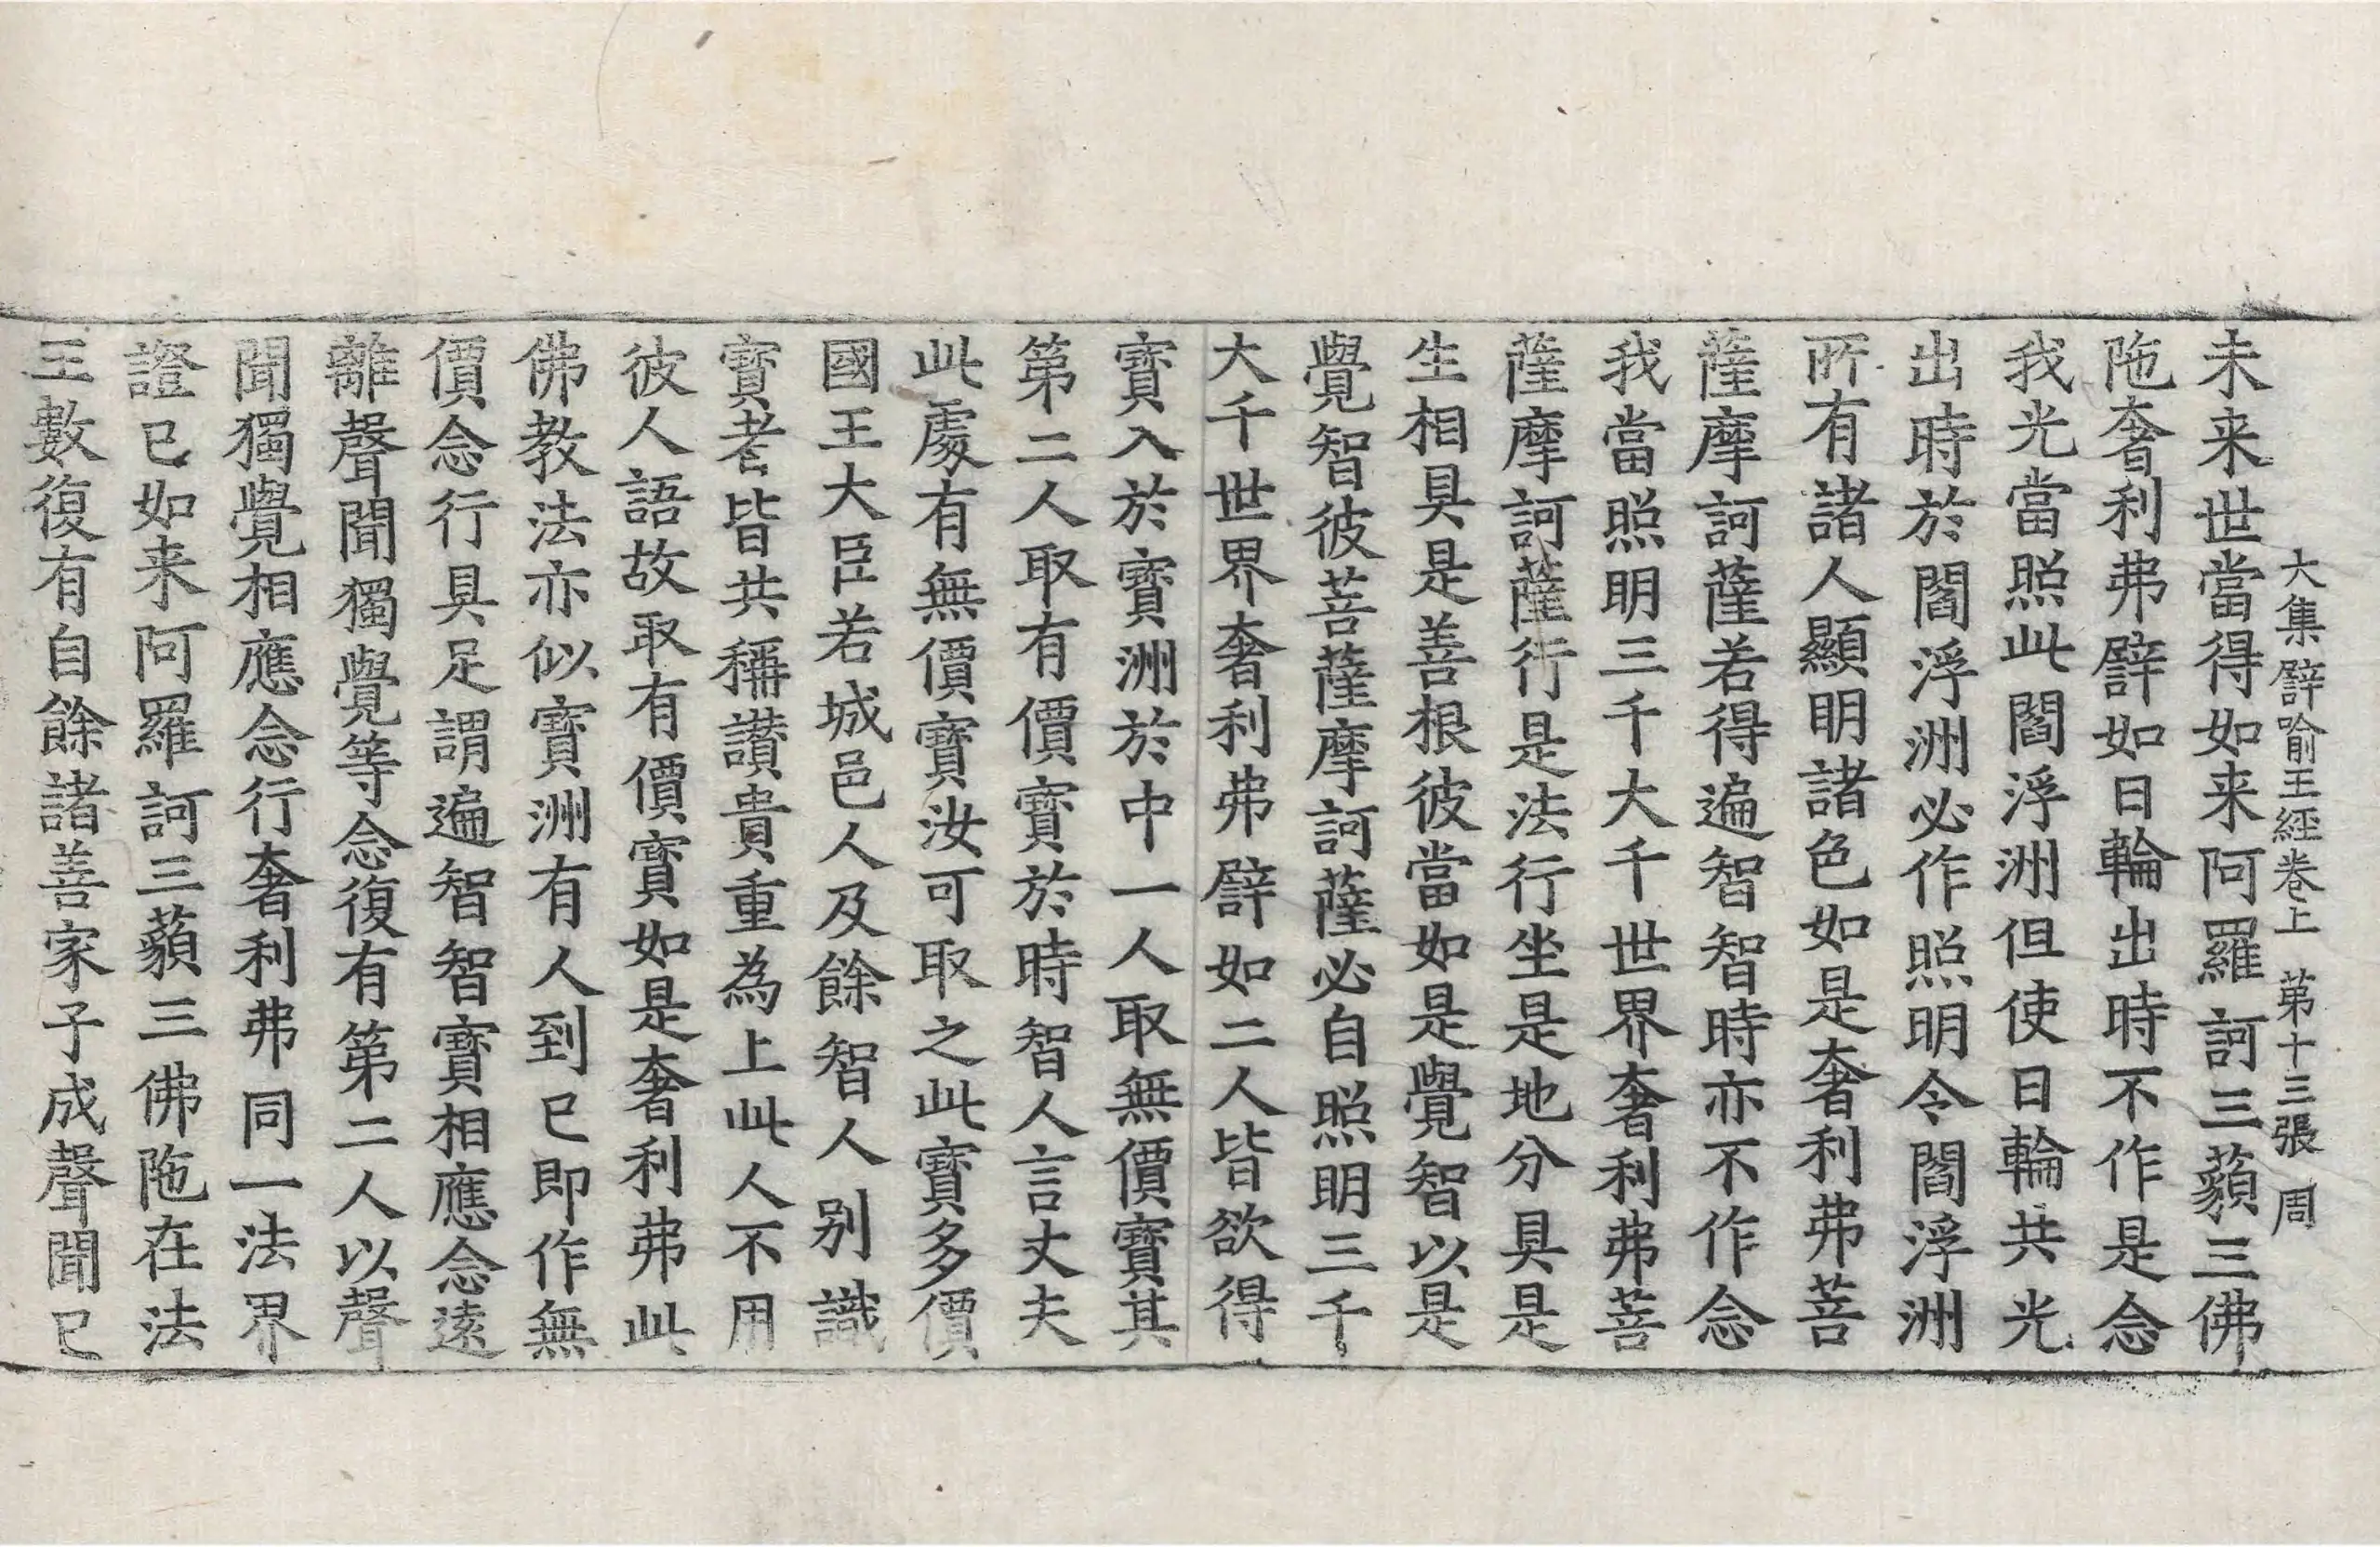 大集譬喻王經卷上 第十三張 周
未来世當得如来阿羅訶三藐三佛
陁奢利弗譬如日輪出時不作是念
我光當照此閻浮洲但使日輪共光
出時於閻浮洲必作照明令閻浮洲
所有諸人顯明諸色如是奢利弗菩
薩摩訶薩若得遍智智時亦不作念
我當照明三千大千世界奢利弗菩
薩摩訶薩行是法行坐是地分具是
生相具是善根彼當如是覺智以是
覺智彼菩薩摩訶薩必自照明三千
大千世界奢利弗譬如二人皆欲得
寶入於寶洲於中一人取無價寶其
第二人取有價寶於時智人言丈夫
此處有無價寶汝可取之此寶多價
國王大臣若城邑人及餘智人別識
寶者皆共稱讚貴重為上此人不用
彼人語故取有價寶如是奢利弗此
佛教法亦似寶洲有人到已即作無
價念行具足謂遍智智寶相應念遠
離聲聞獨覺等念復有第二人以聲
聞獨覺相應念行奢利弗同一法界
證已如来阿羅訶三藐三佛陁在法
王數復有自餘諸善家子成聲聞已